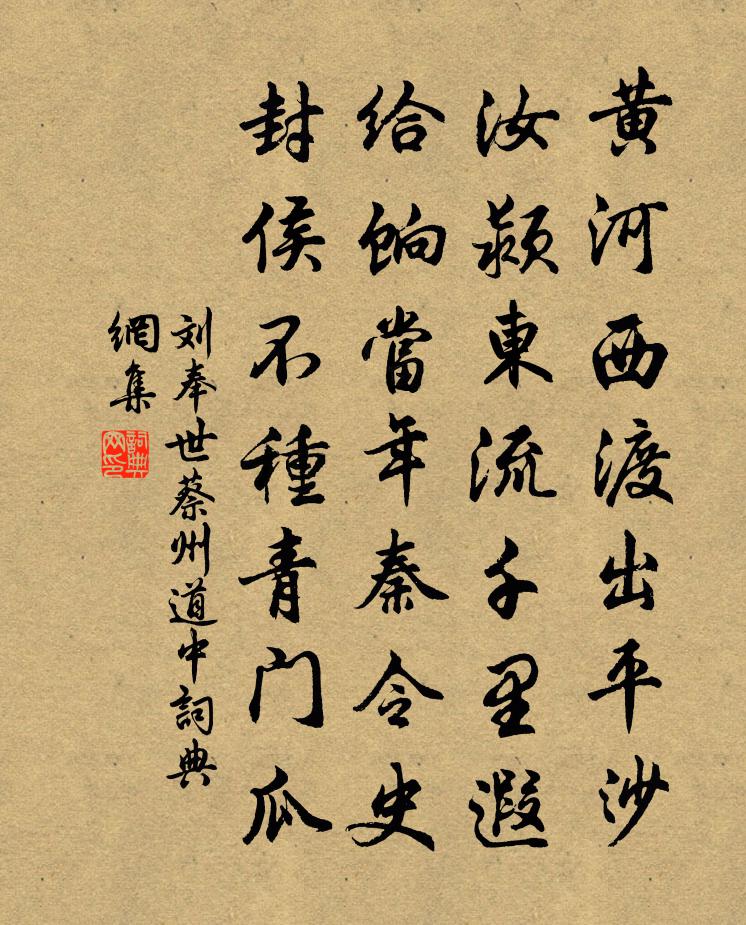 黄河西渡出平沙
汝颍東流千里遐
給餉當年秦令史
封侯不種青門瓜
刘奉世蔡州道中詞典
網集
詞典
网印